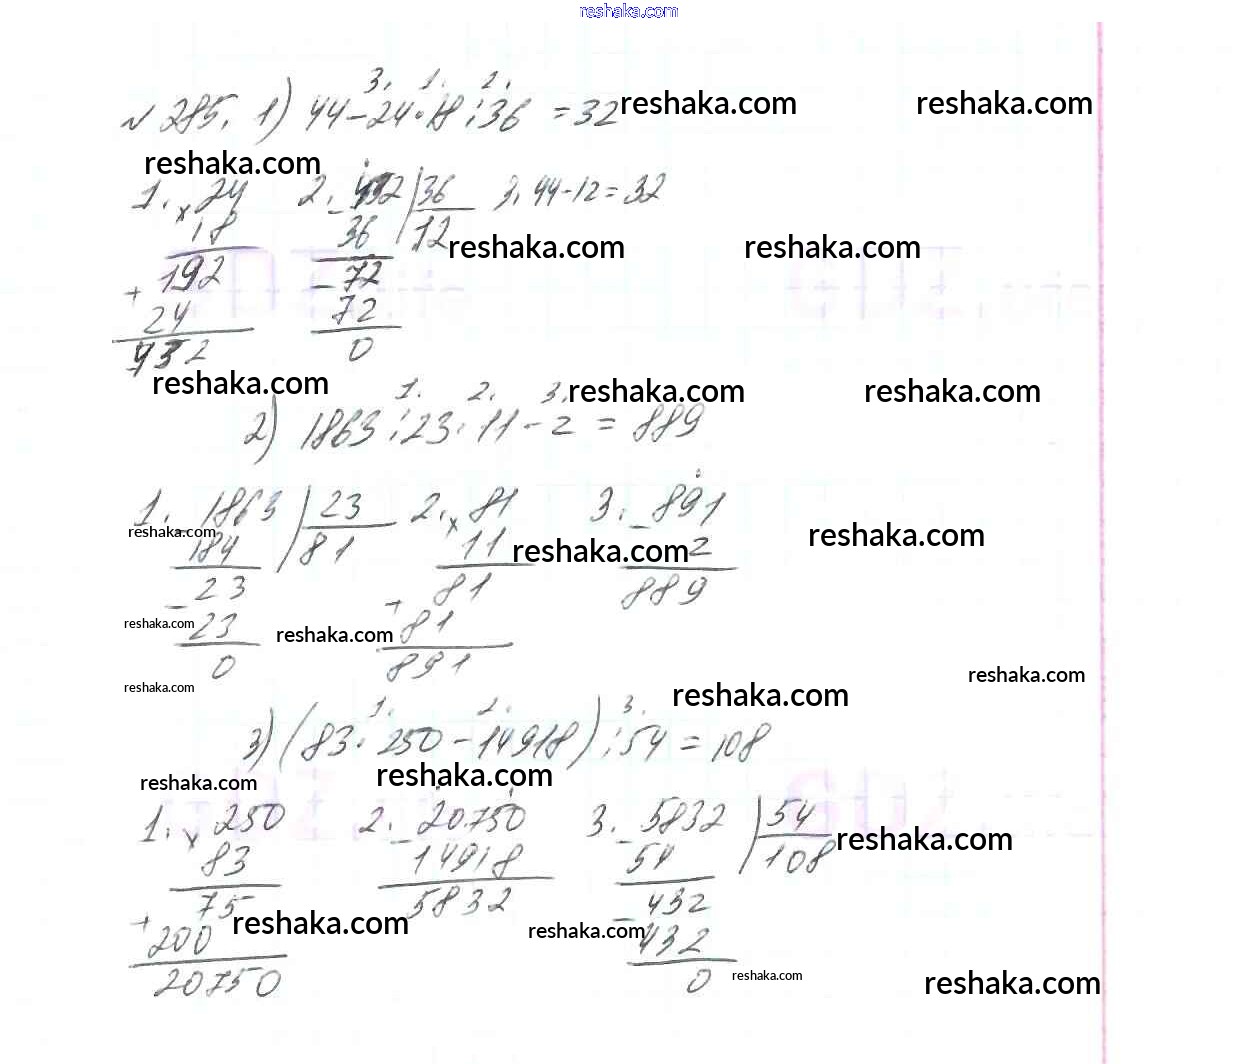 reshaka.com
3. 1. 2.
№ 285. 1) 44-24·18:36 = 32 reshaka.com reshaka.com
reshaka.com
1. × 24 2. - 432 | 36 3. 44-12=32
18 36 12 reshaka.com reshaka.com
192 - 72
+ 24 72
432 0
reshaka.com 1. 2. 3. reshaka.com reshaka.com
2) 1863:23·11-2 = 889
1. - 1863 | 23 2. × 81 3. - 891
reshaka.com 184 81 11 reshaka.com 2 reshaka.com
- 23 81 889
reshaka.com 23 reshaka.com + 81
0 891 reshaka.com
reshaka.com reshaka.com
1. 2. 3.
3) (83·250-14918):54=108
reshaka.com reshaka.com
1. × 250 2. - 20750 3. - 5832 | 54
83 14918 54 108 reshaka.com
75 5832 - 432
+ 200 reshaka.com reshaka.com 432
20750 0 reshaka.com reshaka.com